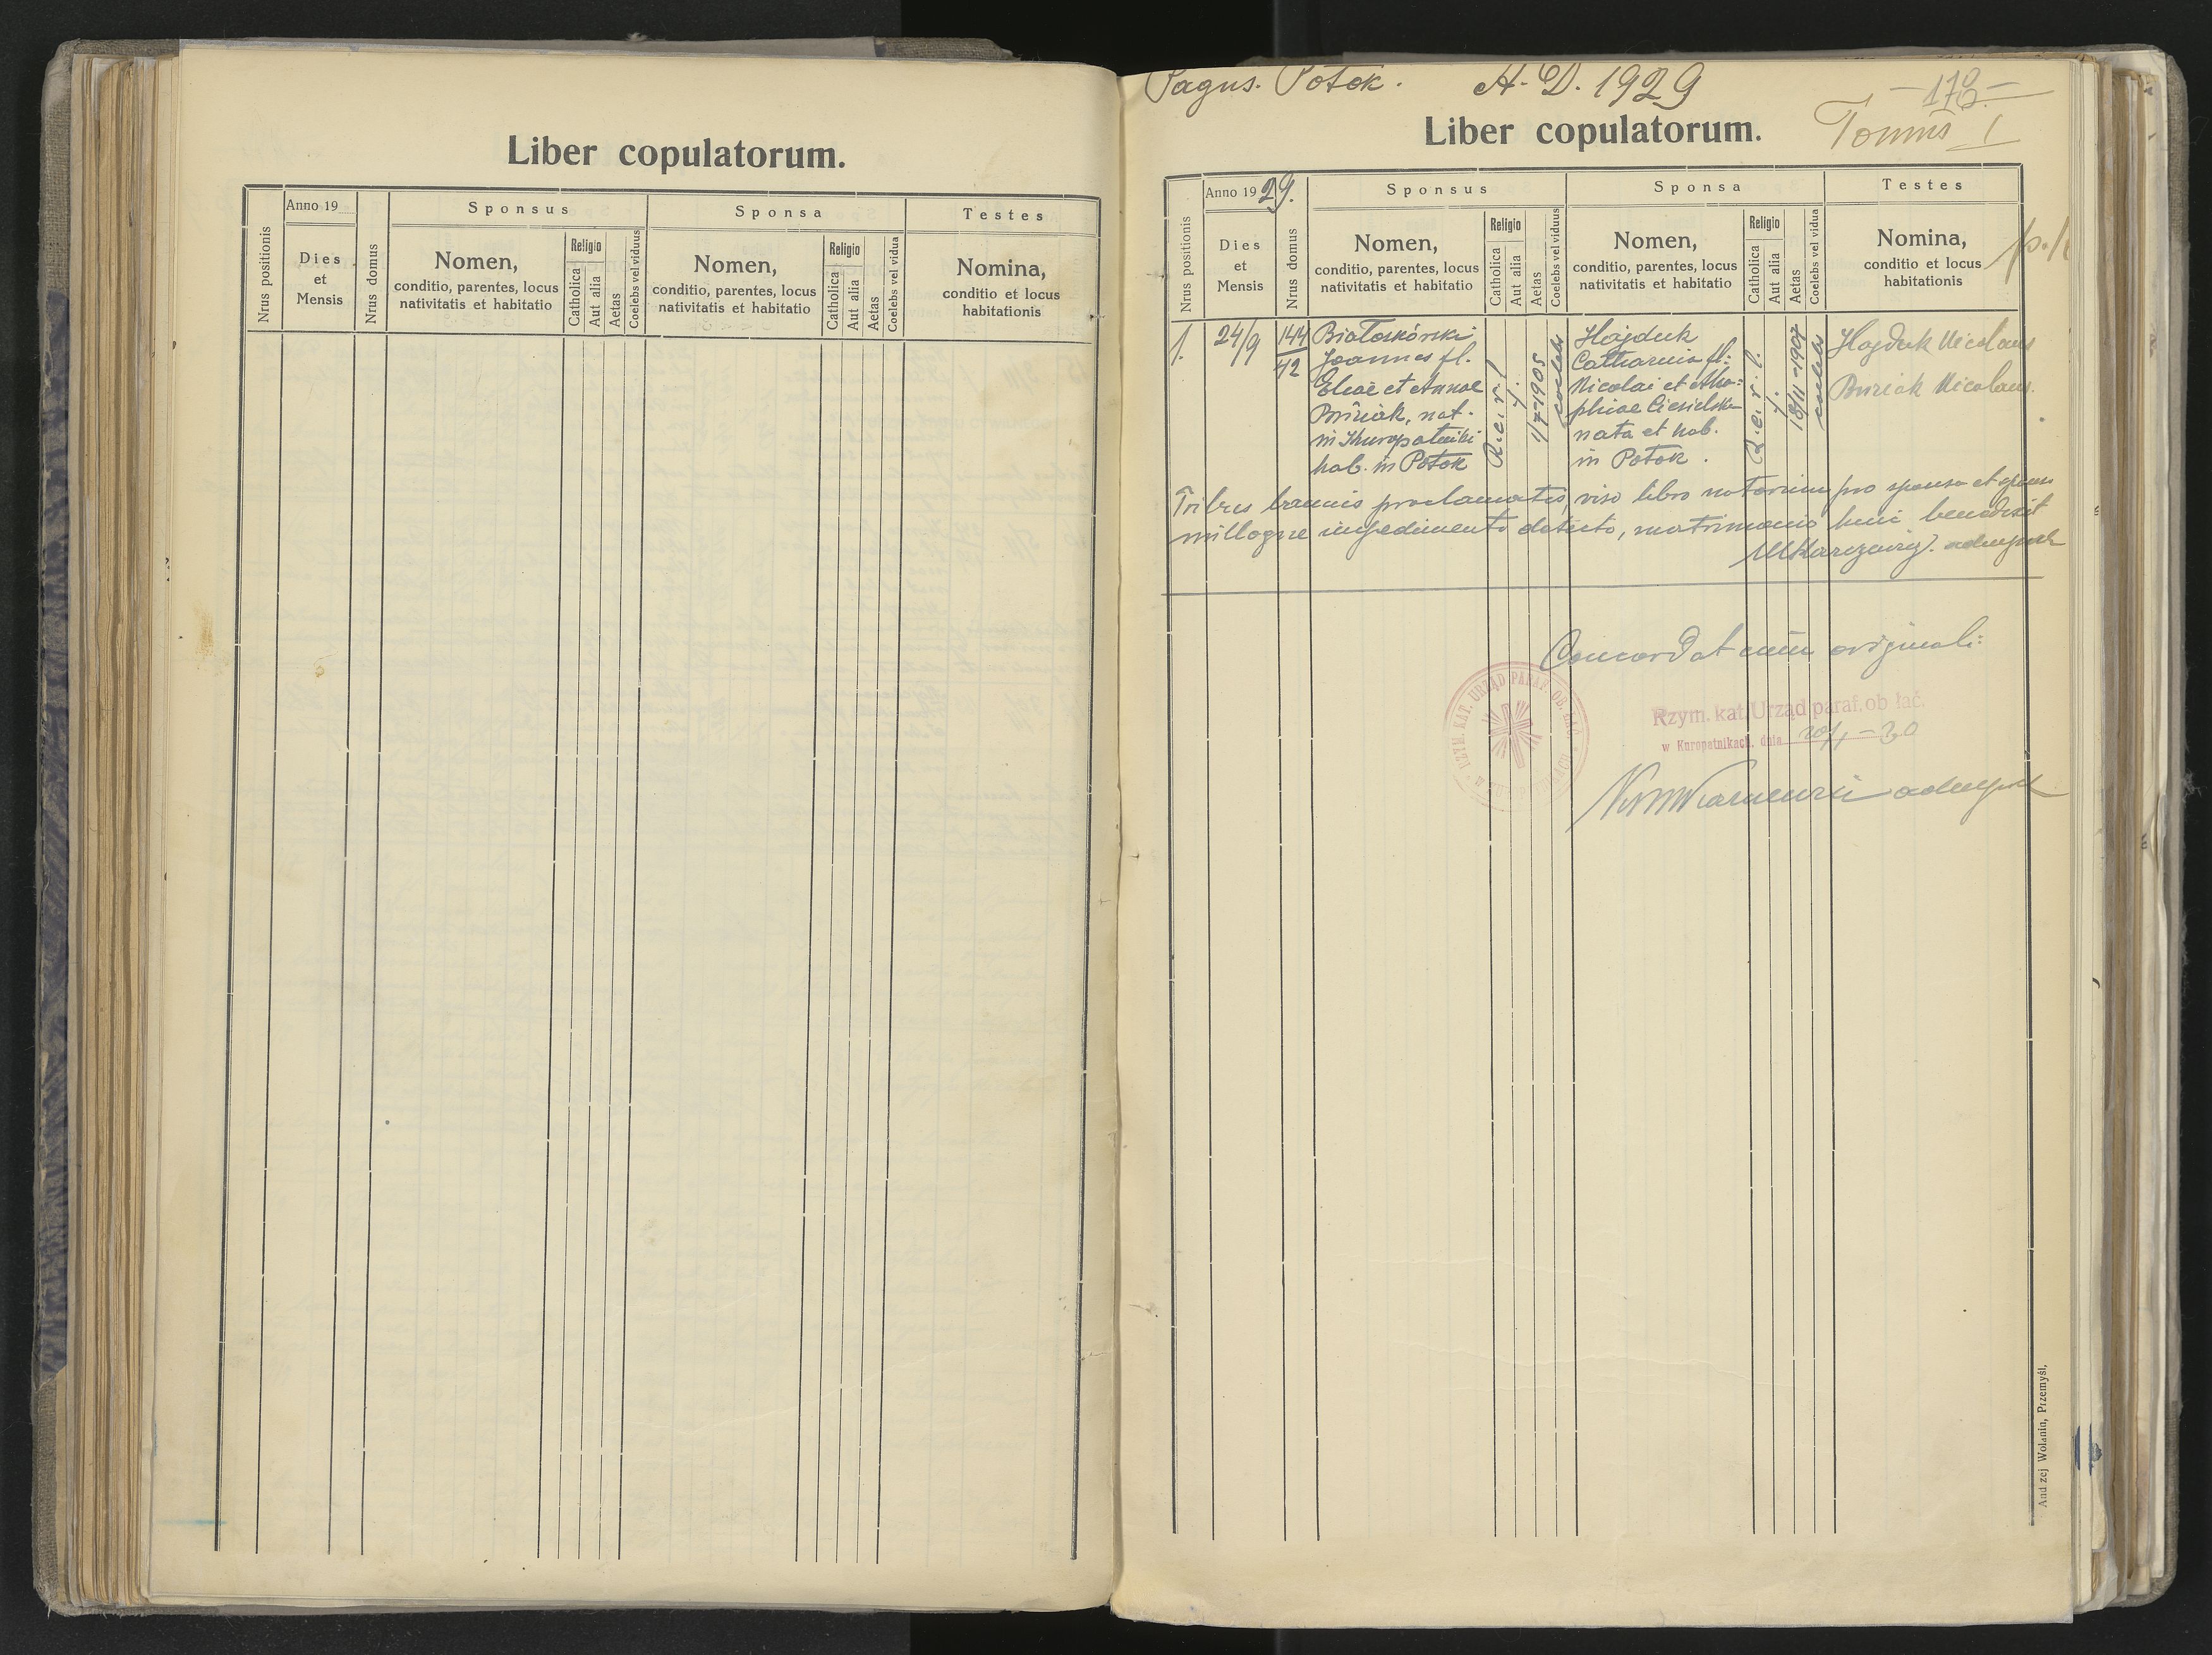 Liber copulatorum.
Nrus positionis
Anno 19
Dies
et
Mensis
Nrus domus
Sponsus
Nomen,
conditio, parentes, locus
nativitatis et habitatio
Religio
Catholica
Aut alia
Aetas
Coelebs vel viduus
Sponsa
Nomen,
conditio, parentes, locus
nativitatis et habitatio
Religio
Catholica
Aut alia
Aetas
Coelebs vel vidua
Testes
Nomina,
conditio et locus
habitationis
Pagus. Potok. A. D. 1929
Liber copulatorum.
Tomus I
Nrus positionis
Anno 1929.
Dies
et
Mensis
Nrus domus
Sponsus
Nomen,
conditio, parentes, locus
nativitatis et habitatio
Religio
Catholica
Aut alia
Aetas
Coelebs vel viduus
Sponsa
Nomen,
conditio, parentes, locus
nativitatis et habitatio
Religio
Catholica
Aut alia
Aetas
Coelebs vel vidua
Testes
Nomina,
conditio et locus
habitationis
1.
24/9
144
72
Białoskórski
Joannes fl.
Eliae et Annae
Buziak, nat.
in Kuropatniki
hab. in Potok
R. c. r. l.
1/7-1905
coelebs
Hajduk
Catharina fl:
Nicolai et
Ciesielska
nata et hab.
in Potok.
R. c. r. l.
18/11-1907
coelebs
Hajduk Nicolaus
Buziak Nicolaus.
Tribus bannis proclamatis, viso libro notarum pro sponso et sponsa
nulloque impedimento detecto, matrimonio huic benedixit
Concordat cum originali:
RZYM. KAT. URZĄD PARAF. OB. ŁAĆ.
Rzym. kat. Urząd paraf. ob łać.
w Kuropatnikach, dnia
Andrzej Wolanin, Przemyśl.